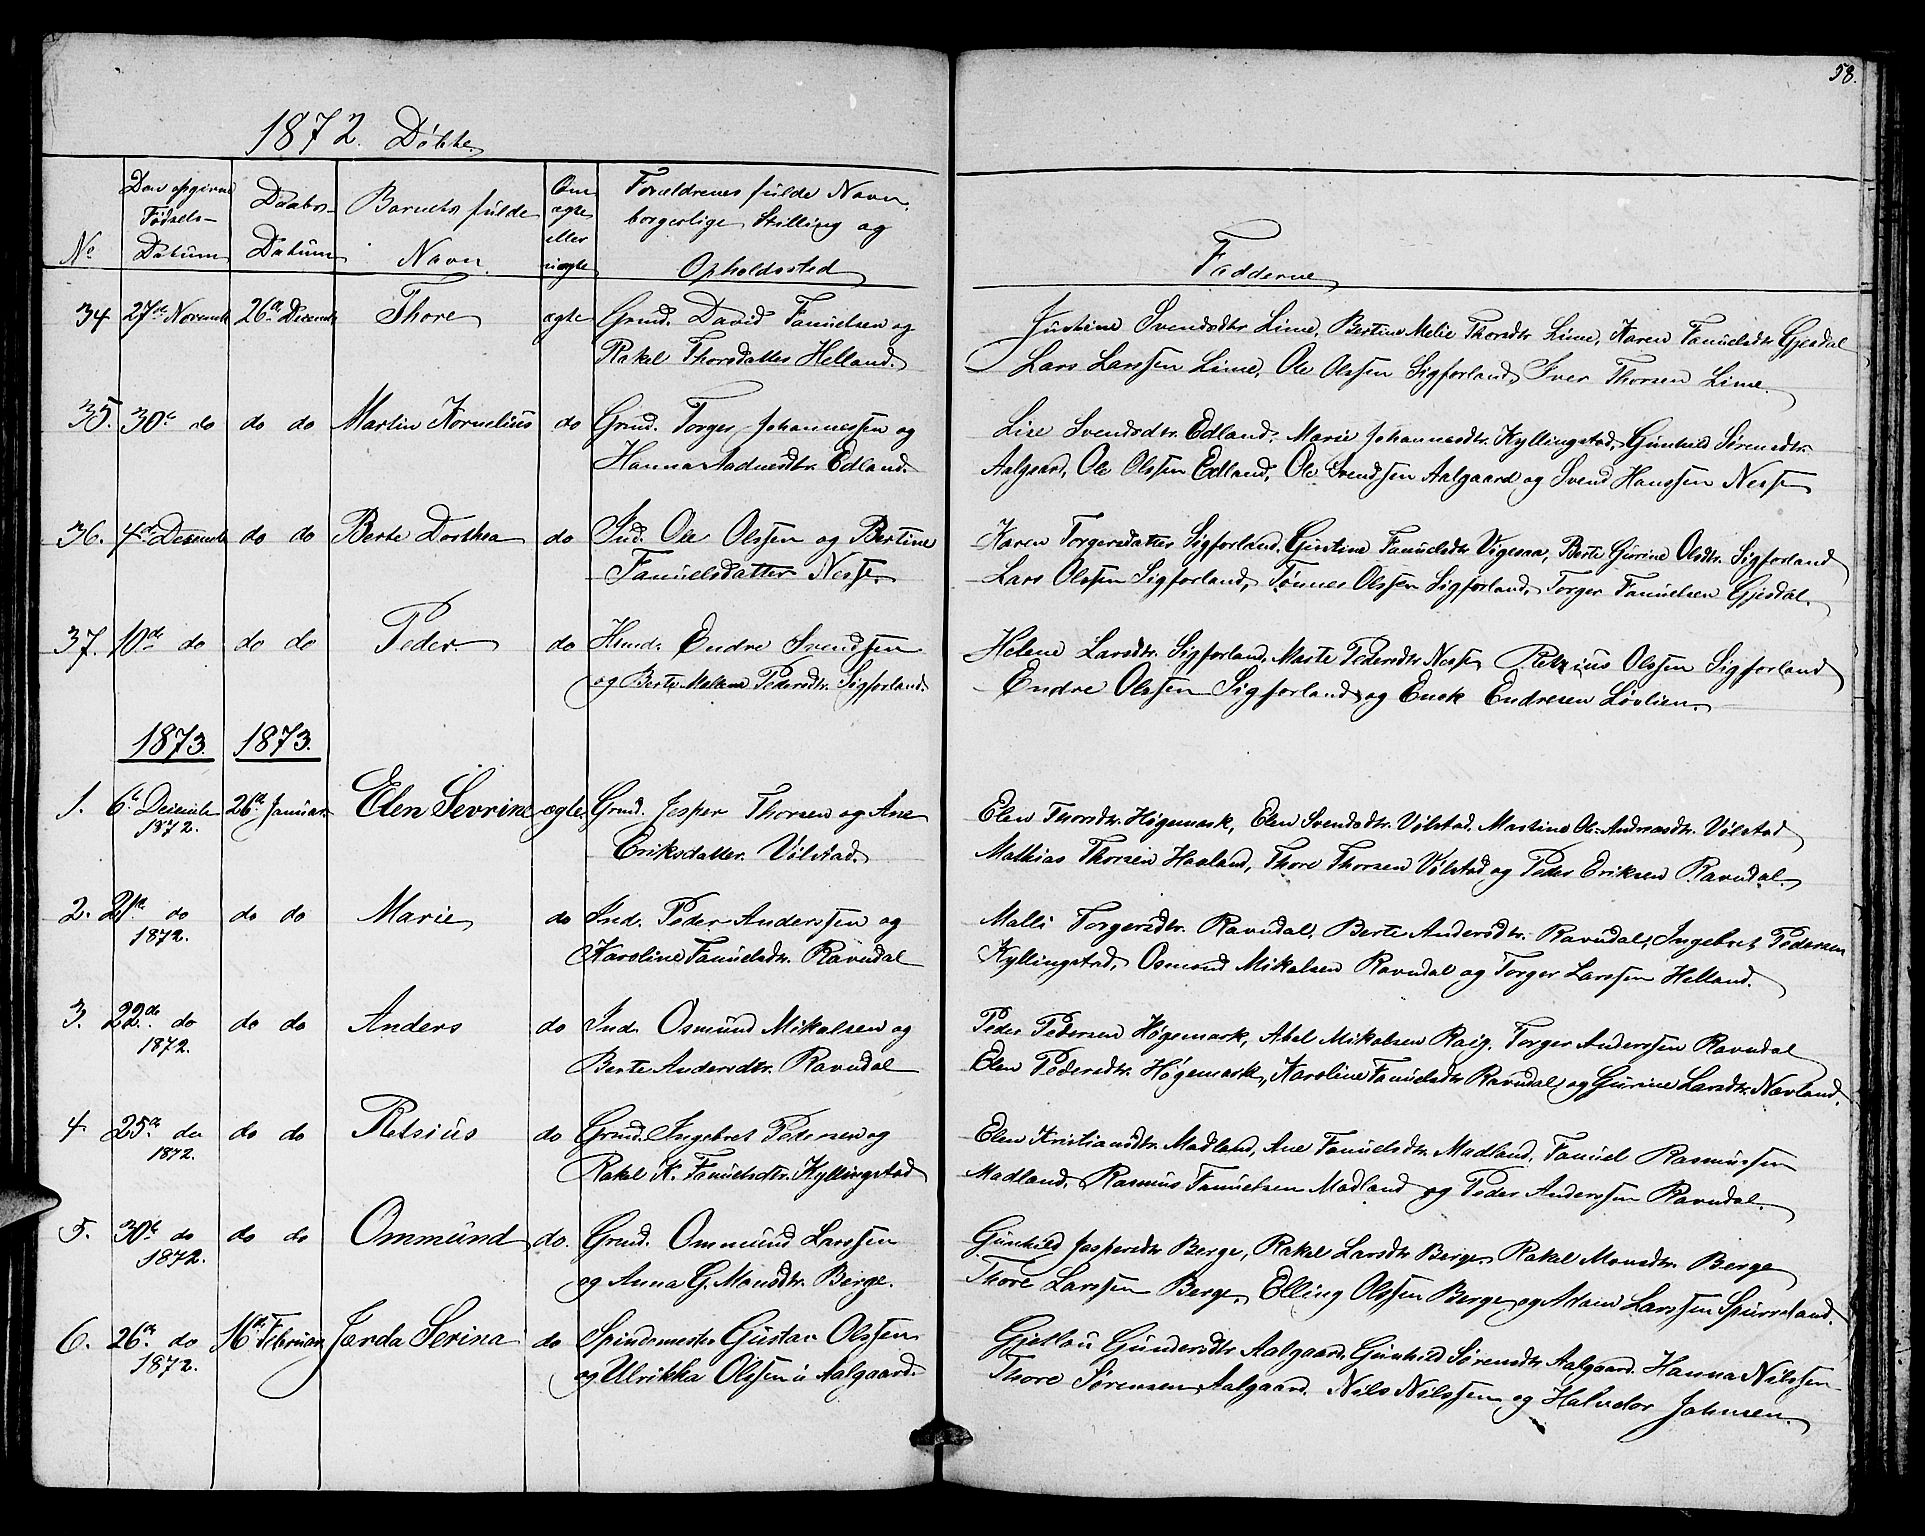 58.
1872. Døbte
No
Den opgivne Fødsels-Datum
Daabs-Datum
Barnets fulde Navn
Om ægte eller uægte
Forældrenes fulde Navn, borgerlige Stilling og Opholdssted
Fadderne
34 27de Novemb. 26de Decemb. Thore ægte Grmd. David Tanuelsen og
Rakel Thorsdatter Helland.
Justine Svendsdtr. Lime, Bertine Melie Thorsdtr. Lime, Karen Tanuelsdtr. Gjesdal
Lars Larssen Lime, Ole Olssen Sigforland, Iver Thorsen Lime.
35. 30te do do do Martin Kornelius do Grmd. Torger Johannessen og
Hanna Aadnesdtr. Edland.
Lise Svendsdtr. Edland, Marie Johannesdtr. Kyllingstad, Gunhild Sørensdtr.
Aalgaard, Ole Olssen Edland, Ole Svendsen Aalgaard og Svend Hanssen Nesse
36. 4de Decemb. do do Berte Dorthea do Ind. Ole Olssen og Bertine
Tanuelsdatter Nesse.
Karen Torgersdatter Sigforland, Gustine Tanuelsdtr. Vigesaa, Berte Gurine Olsdtr. Sigforland
Lars Olssen Sigforland, Tønnes Olssen Sigforland, Torger Tanuelsen Gjesdal.
37. 10de do do do Peder do Husmd. Endre Svendsen
og Berte Malene Pedersdtr. Sigforland.
Helene Larsdtr. Sigforland, Marte Pedersdtr. Nesse, Retzius Olssen Sigforland
Endre Olssen Sigforland og Enok Endresen Løvlien.
1873. 1873.
1. 6te Decemb. 26de Januar. Elen Sevrine ægte. Grmd. Jesper Thorsen og Ane
1872. Eriksdatter Vølstad.
Elen Thorsdtr. Høgemork, Elen Svendsdtr. Vølstad, Martine Ol. Andreasdtr. Vølstad
Mathias Thorsen Haaland, Thore Thorsen Vølstad og Peder Eriksen Ravndal.
2. 21de do do do Marie do Ind. Peder Anderssen og
1872. Karoline Tanuelsdtr. Ravndal
Malli Torgersdtr. Ravndal, Berte Andersdtr. Ravndal, Ingebret Pedersen
Kyllingstad, Osmond Mikalsen Ravndal og Torger Larssen Helland.
3. 22de do do do Anders do Ind. Osmund Mikalsen og
1872. Berte Andersdtr. Ravndal
Peder Pedersen Høgemork, Abel Mikalsen Raig, Torger Anderssen Ravndal
Elen Pedersdtr. Høgemork, Karoline Tanuelsdtr. Ravndal og Gurine Larsdtr. Navland.
4 25de do do do Retsius do Grmd. Ingebret Pedersen og
1872. Rakel K. Tanuelsdtr. Kyllingstad
Elen Kristiansdtr. Madland, Ane Tanuelsdtr. Madland, Tanuel Rasmussen
Madland, Rasmus Tanuelsen Madland og Peder Anderssen Ravndal.
5. 30te do do do Ommund do. Grmd. Ommund Larssen
1872. og Anna G. Monsdtr. Berge.
Gunhild Jespersdtr. Berge, Rakel Larsdtr. Berge, Rakel Monsdtr. Berge
Thore Larssen Berge, Elling Olssen Berge og Adam Larssen Spurreland.
6. 26de do 16de Februar Jærda Serina do Spindemester Gustav Olssen
1872. og Ulrikka Olssen i Aalgaard.
Gjellou Gundersdtr. Aalgaard, Gunhild Sørensdtr. Aalgaard. Hanna Nilssen
Thore Sørensen Aalgaard. Nils Nilssen og Halvdor Johnsen.